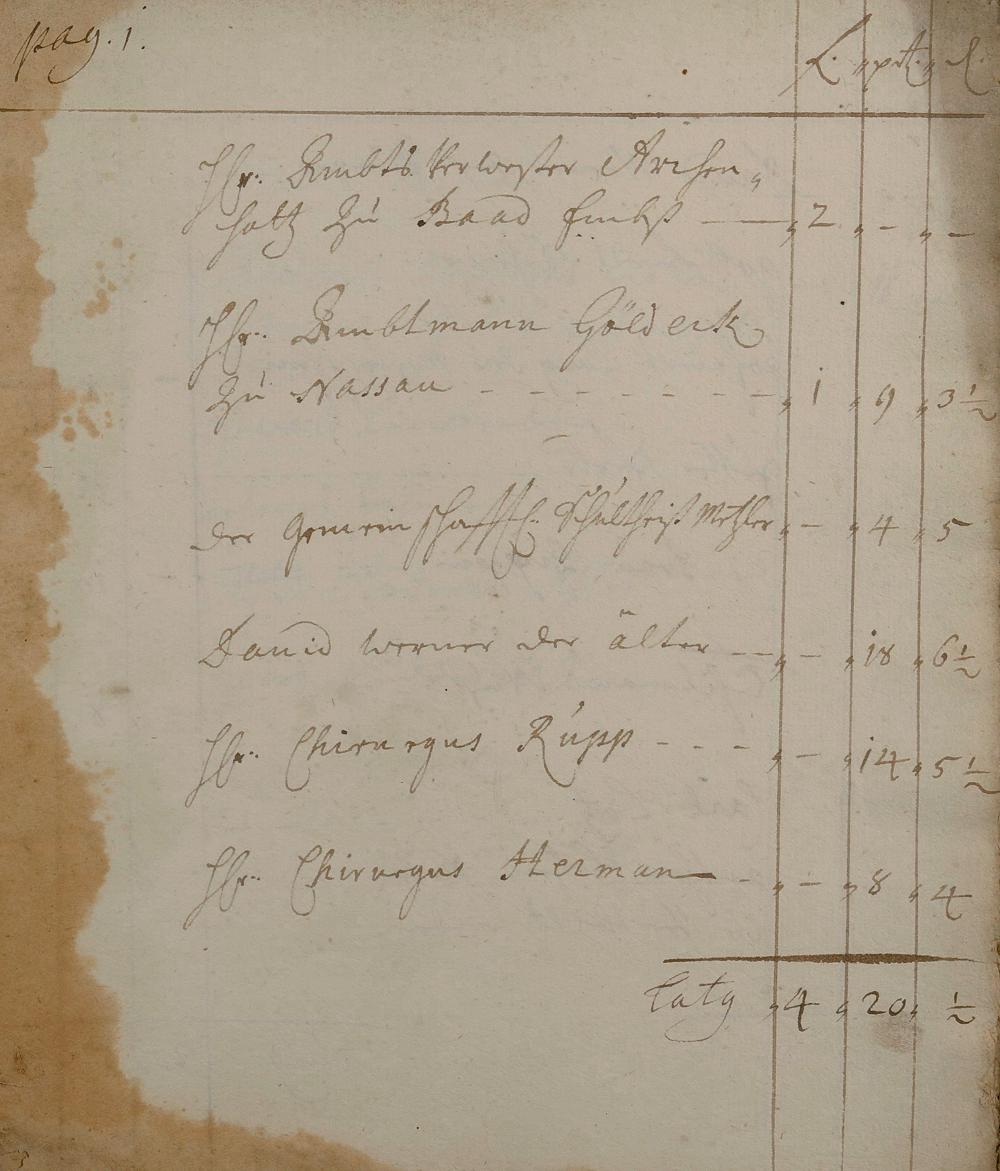 pag. 1.
f. " xr. " d.
Hr. Ambts Verweser Archen„
holtz zu Baad Embß — " 2 " - " -
Hr. Ambtmann Göldeck
zu Nassau - - - - - - - " 1 " 9 " 3 1/2
der gemeinschafftl. Schultheiß Metzler " - " 4 " 5
David werner der älter — " - " 18 " 6 1/2
Hr. Chirurgus Rupp - - - " - " 14 " 5 1/2
Hr. Chirurgus Herman - " - " 8 " 4
Latq " 4 " 20 " 1/2